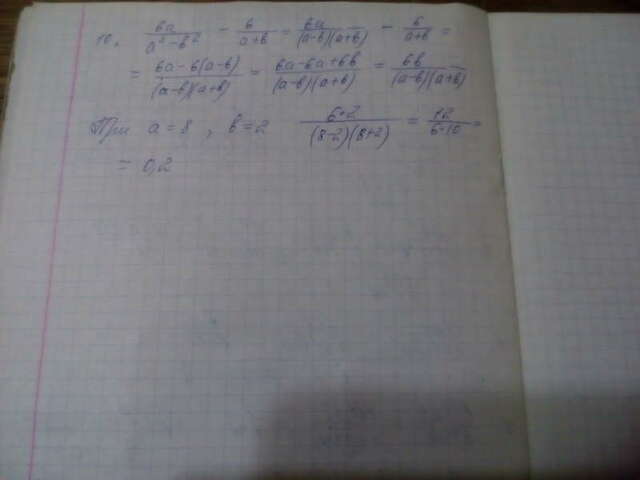 10. 6a/(a²-b²) - 6/(a+b) = 6a/((a-b)(a+b)) - 6/(a+b) =
= (6a-6(a-b))/((a-b)(a+b)) = (6a-6a+6b)/((a-b)(a+b)) = 6b/((a-b)(a+b))
При a=8, b=2 6·2/((8-2)(8+2)) = 12/(6·10) =
= 0,2